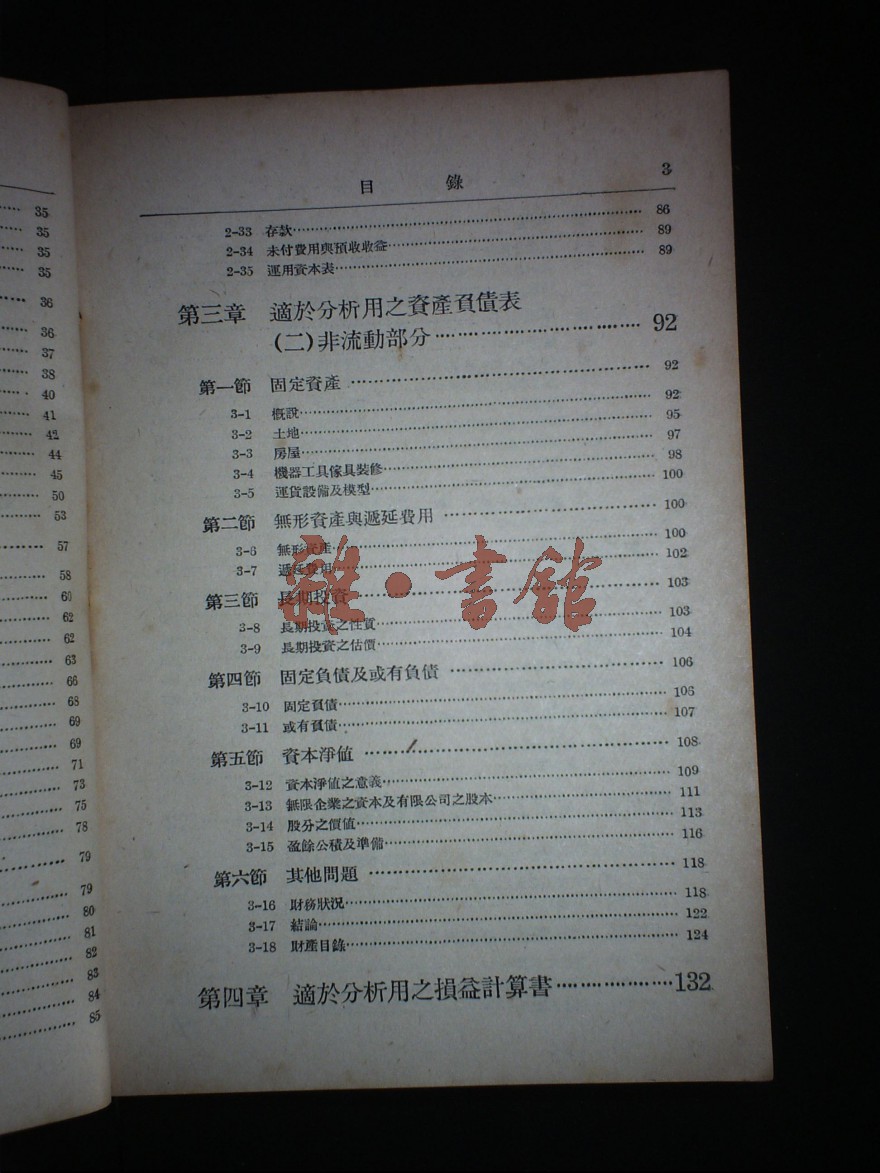 35
35
35
35
36
36
37
38
40
41
42
44
45
50
53
57
58
60
62
62
63
66
68
69
69
71
73
75
78
79
79
80
81
82
83
84
85
目 錄 3
2-33 存款 86
2-34 未付費用與預收收益 89
2-35 運用資本表 89
第三章 適於分析用之資產負債表
(二)非流動部分 92
第一節 固定資產 92
3-1 槪說 92
3-2 土地 95
3-3 房屋 97
3-4 機器工具傢具裝修 98
3-5 運貨設備及模型 100
第二節 無形資產與遞延費用 100
3-6 無形資產 100
3-7 遞延費用 102
第三節 長期投資 103
3-8 長期投資之性質 103
3-9 長期投資之估價 104
第四節 固定負債及或有負債 106
3-10 固定負債 106
3-11 或有負債 107
第五節 資本淨値 108
3-12 資本淨値之意義 109
3-13 無限企業之資本及有限公司之股本 111
3-14 股分之價値 113
3-15 盈餘公積及準備 116
第六節 其他問題 118
3-16 財務狀況 118
3-17 結論 122
3-18 財產目錄 124
第四章 適於分析用之損益計算書 132
雜·書館